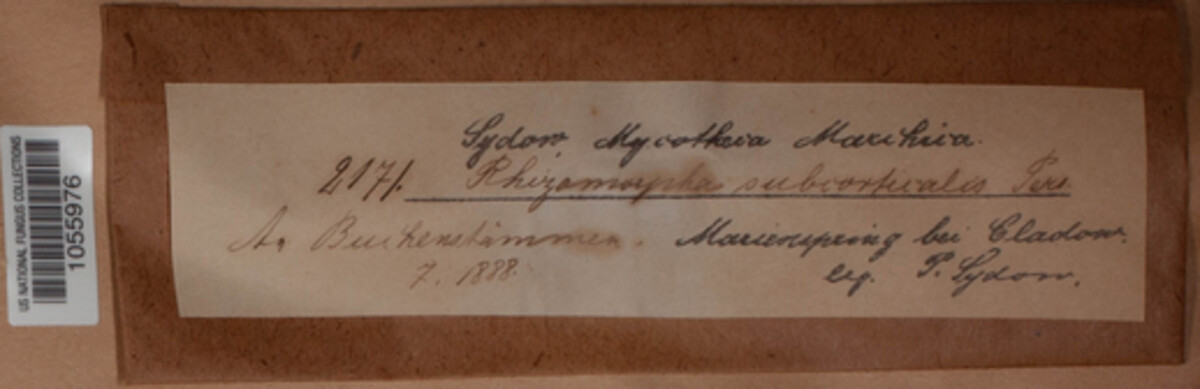 Sydow, Mycotheca Marchica.
2171. Rhizomorpha subcorticalis Pers.
An Buchenstämmen. Marienspring bei Cladow.
7. 1888. leg. P. Sydow.
US NATIONAL FUNGUS COLLECTIONS
1055976